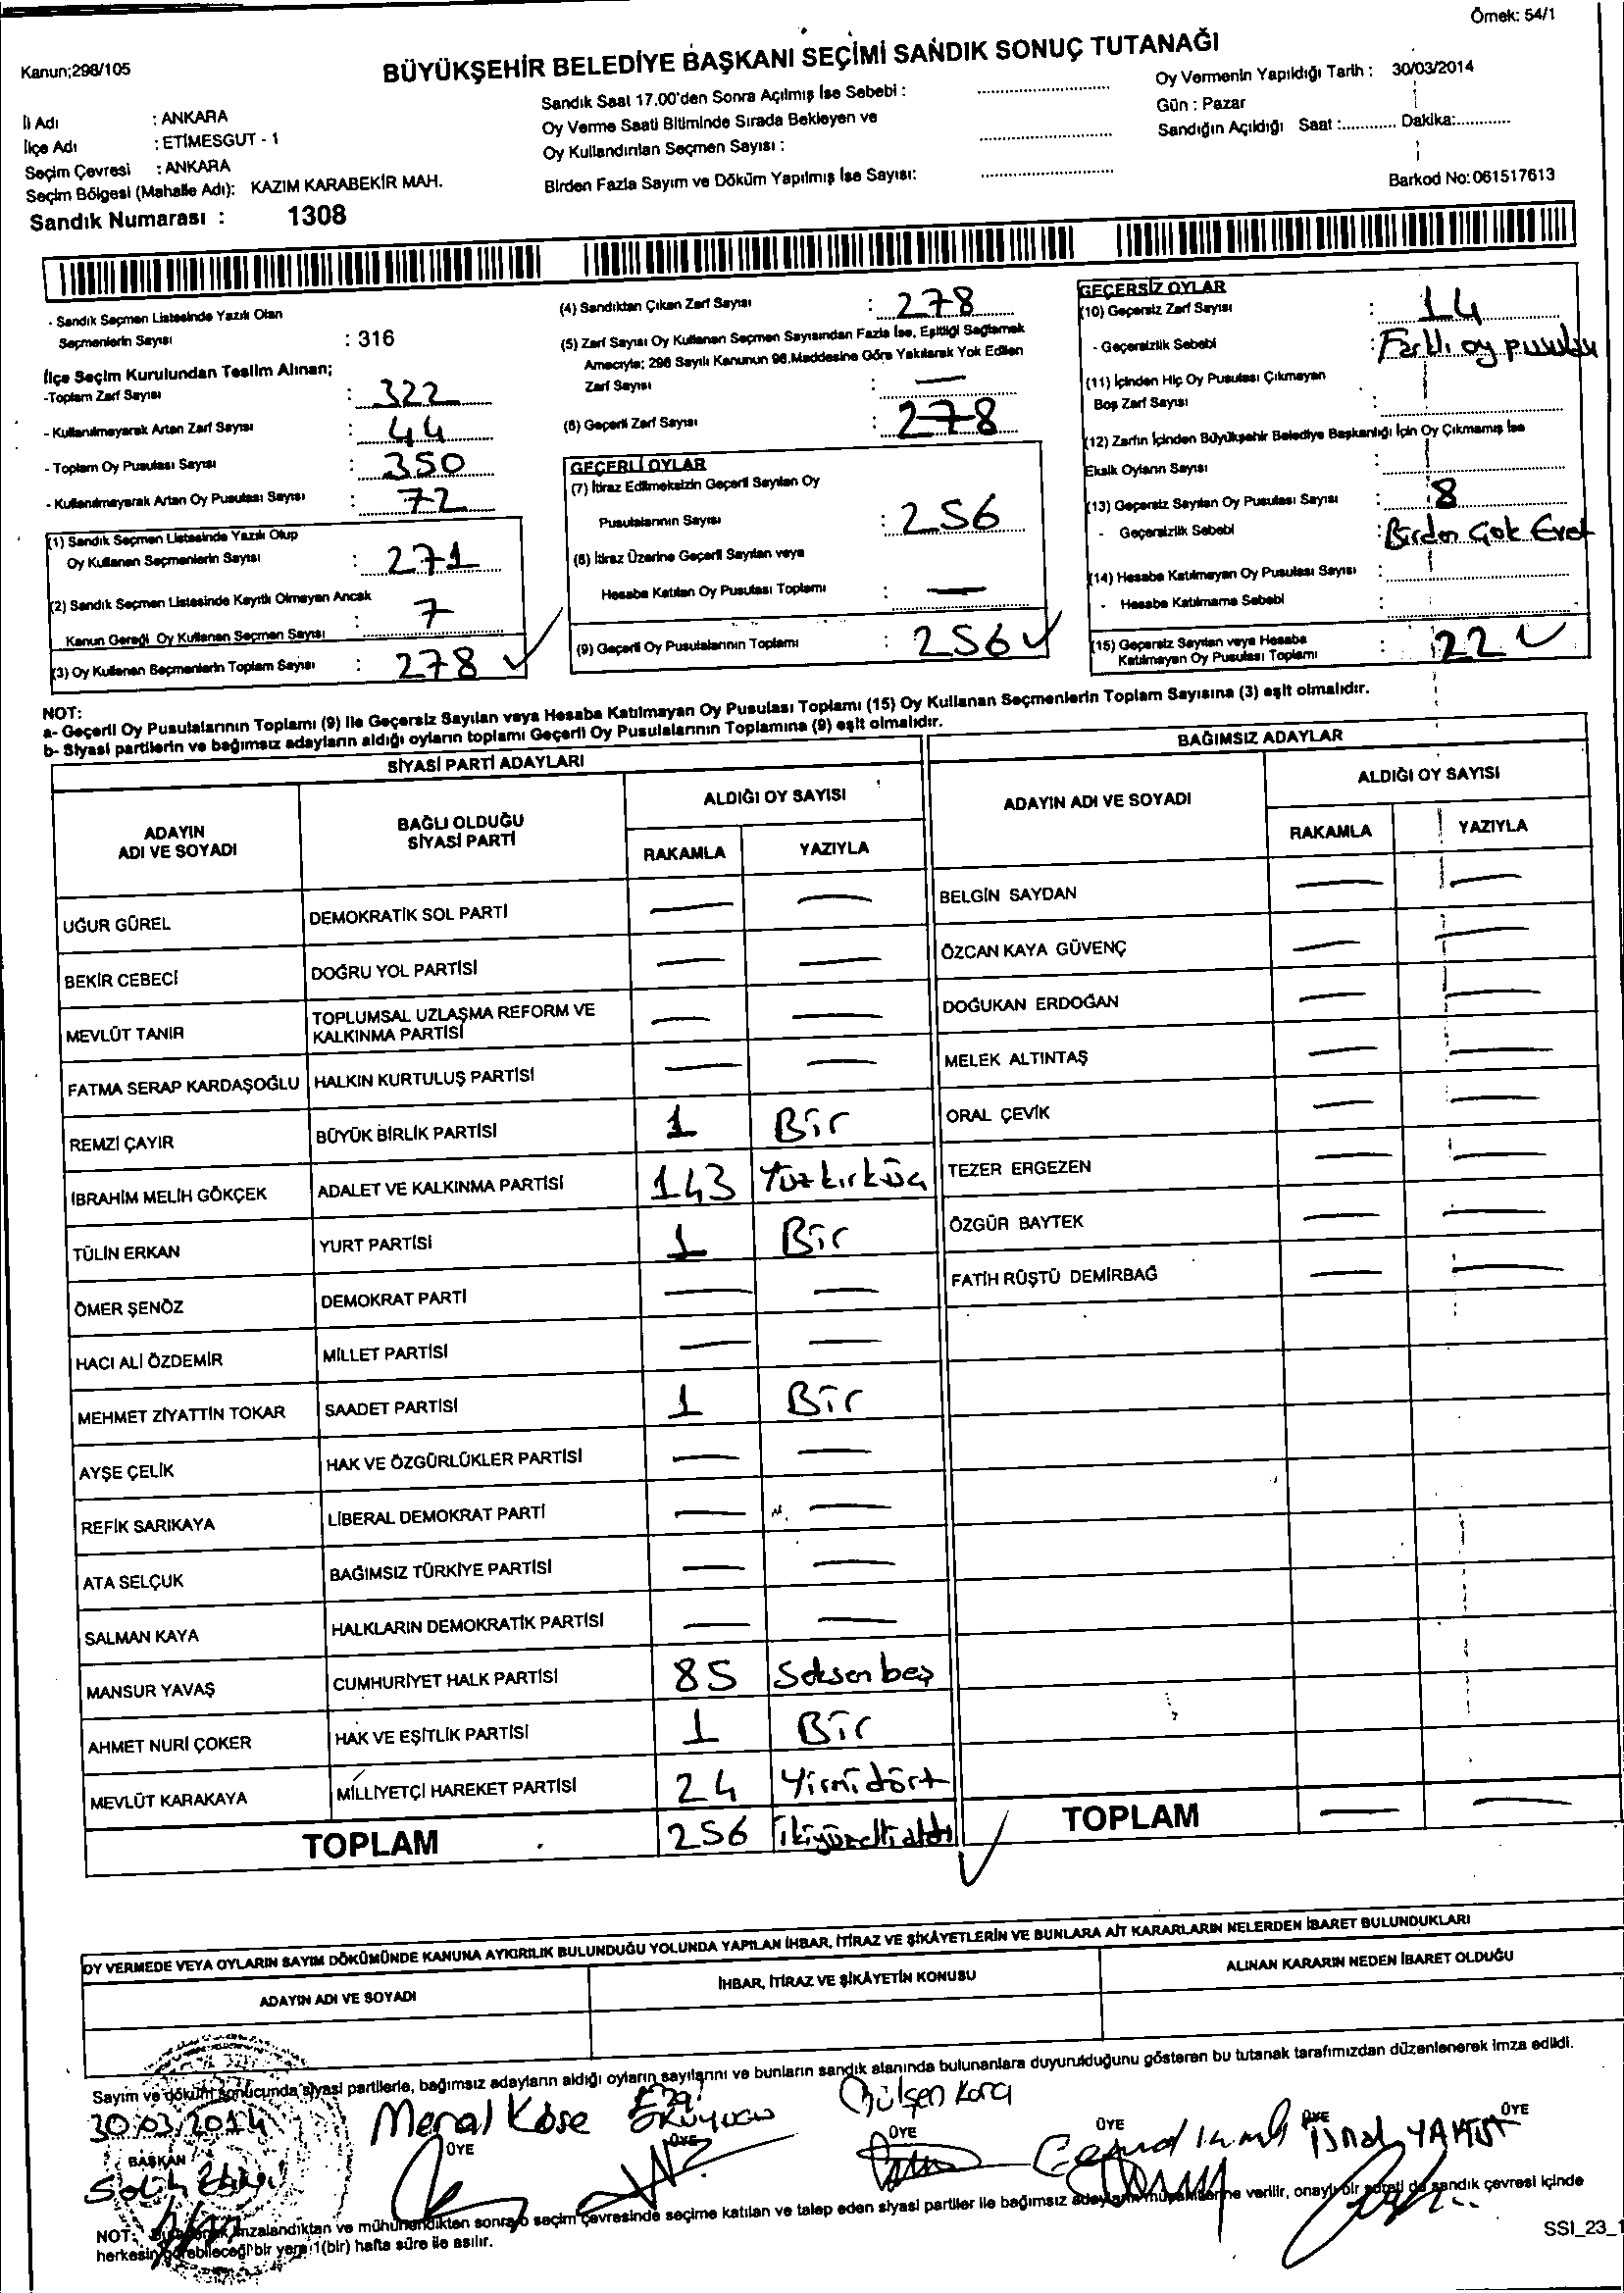 Örnek: 54/1
Kanun;298/105
BÜYÜKŞEHİR BELEDİYE BAŞKANI SEÇİMİ SANDIK SONUÇ TUTANAĞI
İl Adı : ANKARA
İlçe Adı : ETİMESGUT - 1
Seçim Çevresi : ANKARA
Seçim Bölgesi (Mahalle Adı): KAZIM KARABEKİR MAH.
Sandık Numarası : 1308
Sandık Saat 17.00'den Sonra Açılmış İse Sebebi :
Oy Verme Saati Bitiminde Sırada Bekleyen ve
Oy Kullandırılan Seçmen Sayısı :
Birden Fazla Sayım ve Döküm Yapılmış İse Sayısı:
Oy Vermenin Yapıldığı Tarih : 30/03/2014
Gün : Pazar
Sandığın Açıldığı Saat :............ Dakika:............
Barkod No: 061517613
- Sandık Seçmen Listesinde Yazılı Olan
Seçmenlerin Sayısı : 316
İlçe Seçim Kurulundan Teslim Alınan;
-Toplam Zarf Sayısı : 322
- Kullanılmayarak Artan Zarf Sayısı : 44
- Toplam Oy Pusulası Sayısı : 350
- Kullanılmayarak Artan Oy Pusulası Sayısı : 72
(1) Sandık Seçmen Listesinde Yazılı Olup
Oy Kullanan Seçmenlerin Sayısı : 271
(2) Sandık Seçmen Listesinde Kayıtlı Olmayan Ancak
Kanun Gereği Oy Kullanan Seçmen Sayısı : 7
(3) Oy Kullanan Seçmenlerin Toplam Sayısı : 278 ✓
(4) Sandıktan Çıkan Zarf Sayısı : 278
(5) Zarf Sayısı Oy Kullanan Seçmen Sayısından Fazla İse, Eşitliği Sağlamak
Amacıyla; 298 Sayılı Kanunun 98.Maddesine Göre Yakılarak Yok Edilen
Zarf Sayısı : —
(6) Geçerli Zarf Sayısı : 278
GEÇERLİ OYLAR
(7) İtiraz Edilmeksizin Geçerli Sayılan Oy
Pusulalarının Sayısı : 256
(8) İtiraz Üzerine Geçerli Sayılan veya
Hesaba Katılan Oy Pusulası Toplamı : —
(9) Geçerli Oy Pusulalarının Toplamı : 256 ✓
GEÇERSİZ OYLAR
(10) Geçersiz Zarf Sayısı : 14
- Geçersizlik Sebebi : Farklı oy pusulası
(11) İçinden Hiç Oy Pusulası Çıkmayan
Boş Zarf Sayısı :
(12) Zarfın İçinden Büyükşehir Belediye Başkanlığı İçin Oy Çıkmamış İse
Eksik Oyların Sayısı :
(13) Geçersiz Sayılan Oy Pusulası Sayısı : 8
- Geçersizlik Sebebi : Birden Çok Evet
(14) Hesaba Katılmayan Oy Pusulası Sayısı :
- Hesaba Katılmama Sebebi :
(15) Geçersiz Sayılan veya Hesaba
Katılmayan Oy Pusulası Toplamı : 22 ✓
NOT:
a- Geçerli Oy Pusulalarının Toplamı (9) ile Geçersiz Sayılan veya Hesaba Katılmayan Oy Pusulası Toplamı (15) Oy Kullanan Seçmenlerin Toplam Sayısına (3) eşit olmalıdır.
b- Siyasi partilerin ve bağımsız adayların aldığı oyların toplamı Geçerli Oy Pusulalarının Toplamına (9) eşit olmalıdır.
SİYASİ PARTİ ADAYLARI
ADAYIN ADI VE SOYADI
BAĞLI OLDUĞU SİYASİ PARTİ
ALDIĞI OY SAYISI
RAKAMLA YAZIYLA
UĞUR GÜREL DEMOKRATİK SOL PARTİ — —
BEKİR CEBECİ DOĞRU YOL PARTİSİ — —
MEVLÜT TANIR TOPLUMSAL UZLAŞMA REFORM VE KALKINMA PARTİSİ — —
FATMA SERAP KARDAŞOĞLU HALKIN KURTULUŞ PARTİSİ — —
REMZİ ÇAYIR BÜYÜK BİRLİK PARTİSİ 1 Bir
İBRAHİM MELİH GÖKÇEK ADALET VE KALKINMA PARTİSİ 143 Yüzkırküç
TÜLİN ERKAN YURT PARTİSİ 1 Bir
ÖMER ŞENÖZ DEMOKRAT PARTİ — —
HACI ALİ ÖZDEMİR MİLLET PARTİSİ — —
MEHMET ZİYATTİN TOKAR SAADET PARTİSİ 1 Bir
AYŞE ÇELİK HAK VE ÖZGÜRLÜKLER PARTİSİ — —
REFİK SARIKAYA LİBERAL DEMOKRAT PARTİ — —
ATA SELÇUK BAĞIMSIZ TÜRKİYE PARTİSİ — —
SALMAN KAYA HALKLARIN DEMOKRATİK PARTİSİ — —
MANSUR YAVAŞ CUMHURİYET HALK PARTİSİ 85 Seksenbeş
AHMET NURİ ÇOKER HAK VE EŞİTLİK PARTİSİ 1 Bir
MEVLÜT KARAKAYA MİLLİYETÇİ HAREKET PARTİSİ 24 Yirmidört
TOPLAM 256 ikiyüzellialtı ✓
BAĞIMSIZ ADAYLAR
ADAYIN ADI VE SOYADI
ALDIĞI OY SAYISI
RAKAMLA YAZIYLA
BELGİN SAYDAN — —
ÖZCAN KAYA GÜVENÇ — —
DOĞUKAN ERDOĞAN — —
MELEK ALTINTAŞ — —
ORAL ÇEVİK — —
TEZER ERGEZEN — —
ÖZGÜR BAYTEK — —
FATİH RÜŞTÜ DEMİRBAĞ — —
TOPLAM — —
OY VERMEDE VEYA OYLARIN SAYIM DÖKÜMÜNDE KANUNA AYKIRILIK BULUNDUĞU YOLUNDA YAPILAN İHBAR, İTİRAZ VE ŞİKÂYETLERİN VE BUNLARA AİT KARARLARIN NELERDEN İBARET BULUNDUKLARI
ADAYIN ADI VE SOYADI
İHBAR, İTİRAZ VE ŞİKÂYETİN KONUSU
ALINAN KARARIN NEDEN İBARET OLDUĞU
Sayım ve döküm sonucunda siyasi partilerle, bağımsız adayların aldığı oyların sayılarını ve bunların sandık alanında bulunanlara duyurulduğunu gösteren bu tutanak tarafımızdan düzenlenerek imza edildi.
30.03.2014
BAŞKAN
Salih
Meral Köse
ÜYE
OKUYUCU
ÜYE
Gülşen Kora
ÜYE
ÜYE
ÜYE
ÜYE
NOT: imzalandıktan ve mühürlendikten sonra o seçim çevresinde seçime katılan ve talep eden siyasi partiler ile bağımsız verilir, onaylı bir sureti de sandık çevresi içinde
herkesin görebileceği bir yere 1(bir) hafta süre ile asılır.
SSI_23_1